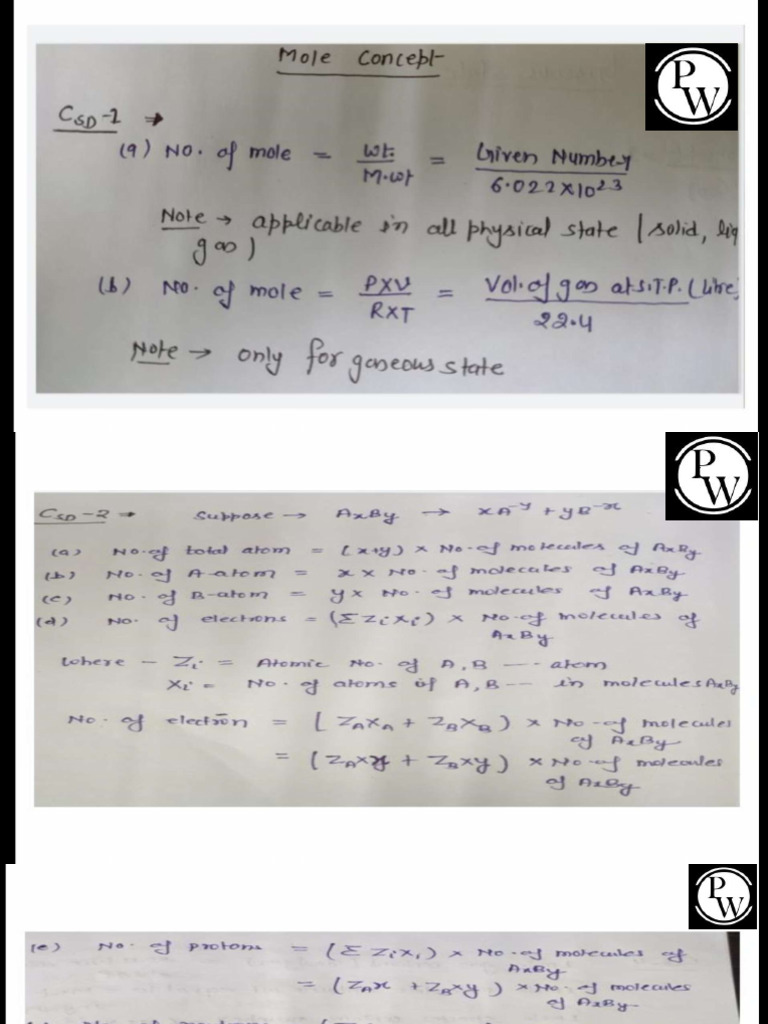 Mole Concept
PW
CSD-1 →
(a) No. of mole = wt. / M.wt = Given Number / 6.022×10^23
Note → applicable in all physical state (solid, liq
gas)
(b) No. of mole = P×V / R×T = Vol. of gas at S.T.P. (Litre) / 22.4
Note → only for gaseous state
PW
CSD-2 → Suppose → AxBy → xA^-y + yB^-x
(a) No. of total atom = (x+y) × No. of molecules of AxBy
(b) No. of A-atom = x × No. of molecules of AxBy
(c) No. of B-atom = y × No. of molecules of AxBy
(d) No. of electrons = (ΣZixi) × No. of molecules of
AxBy
where - Zi = Atomic No. of A, B ---- atom
Xi = No. of atoms of A, B --- in molecules AxBy
No. of electron = (ZAXA + ZBXB) × No. of molecules
of AxBy
= (ZA×x + ZB×y) × No. of molecules
of AxBy
PW
(e) No. of protons = (Σ Zixi) × No. of molecules of
AxBy
= (ZAx + ZB×y) × No. of molecules
of AxBy